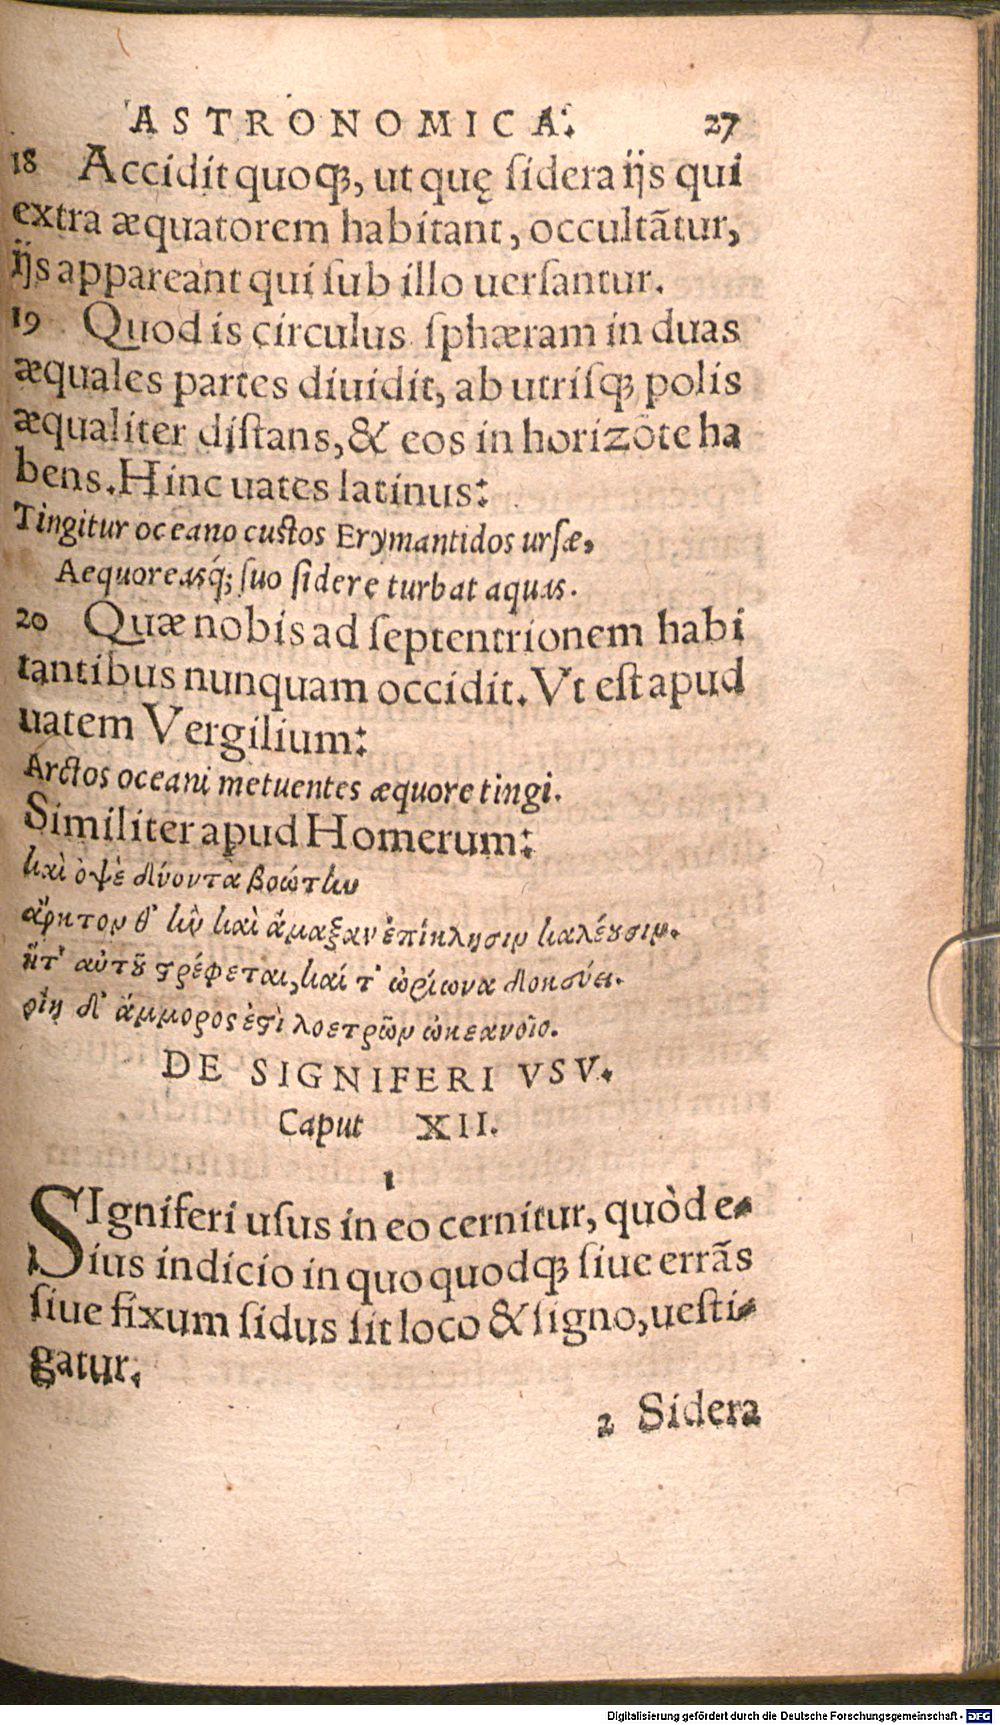 ASTRONOMICA. 27
18 Accidit quoq;, ut quę ſidera ijs qui
extra æquatorem habitant, occultãtur,
ijs appareant qui ſub illo uerſantur.
19 Quod is circulus ſphæram in duas
æquales partes diuidit, ab utriſq; polis
æqualiter diſtans, & eos in horizõte ha
bens. Hinc uates latinus:
Tingitur oceano cuſtos Erymantidos urſæ,
Aequoreasq́; ſuo ſidere turbat aquas.
20 Quæ nobis ad ſeptentrionem habi
tantibus nunquam occidit. Vt eſt apud
uatem Vergilium:
Arctos oceani metuentes æquore tingi.
Similiter apud Homerum:
καὶ ὀψὲ δύοντα βοώτην
ἄρκτον θ' ἣν καὶ ἅμαξαν ἐπίκλησιν καλέουσιν.
ἥτ' αὐτοῦ στρέφεται, καί τ' ὠρίωνα δοκεύει.
οἴη δ' ἄμμορος ἐστὶ λοετρῶν ὠκεανοῖο.
DE SIGNIFERI VSV.
Caput XII.
1
SIgniferi uſus in eo cernitur, quòd e-
ius indicio in quo quodq; ſiue errãs
ſiue fixum ſidus ſit loco & ſigno, ueſti-
gatur.
2 Sidera
Digitalisierung gefördert durch die Deutsche Forschungsgemeinschaft - DFG